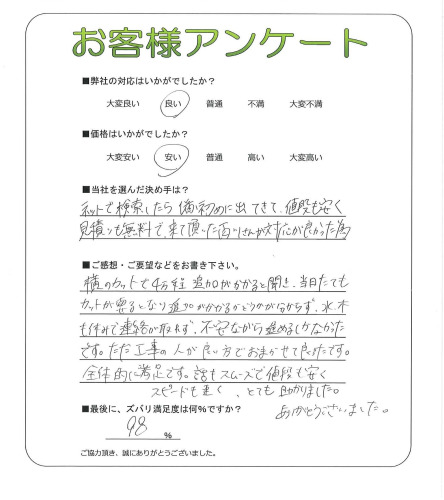 お客様アンケート
■弊社の対応はいかがでしたか？
大変良い 良い 普通 不満 大変不満
■価格はいかがでしたか？
大変安い 安い 普通 高い 大変高い
■当社を選んだ決め手は？
ネットで検索したら 初めに出てきて、値段も安く
見積りも無料で、来て頂いた さんが対応が良かった為
■ご感想・ご要望などをお書き下さい。
横のカットで4万程 追加がかかると聞き、当日たても
カットが要るとなり追加がかかるかどうかが分からず、水木
も休みで連絡が取れず、不安ながら進めるしかなかった
です。ただ工事の人が良い方でおまかせて良かったです。
全体的に満足です。話もスムーズで値段も安く
スピードも速く、とても助かりました。
ありがとうございました。
■最後に、ズバリ満足度は何%ですか？
98 %
ご協力頂き、誠にありがとうございました。